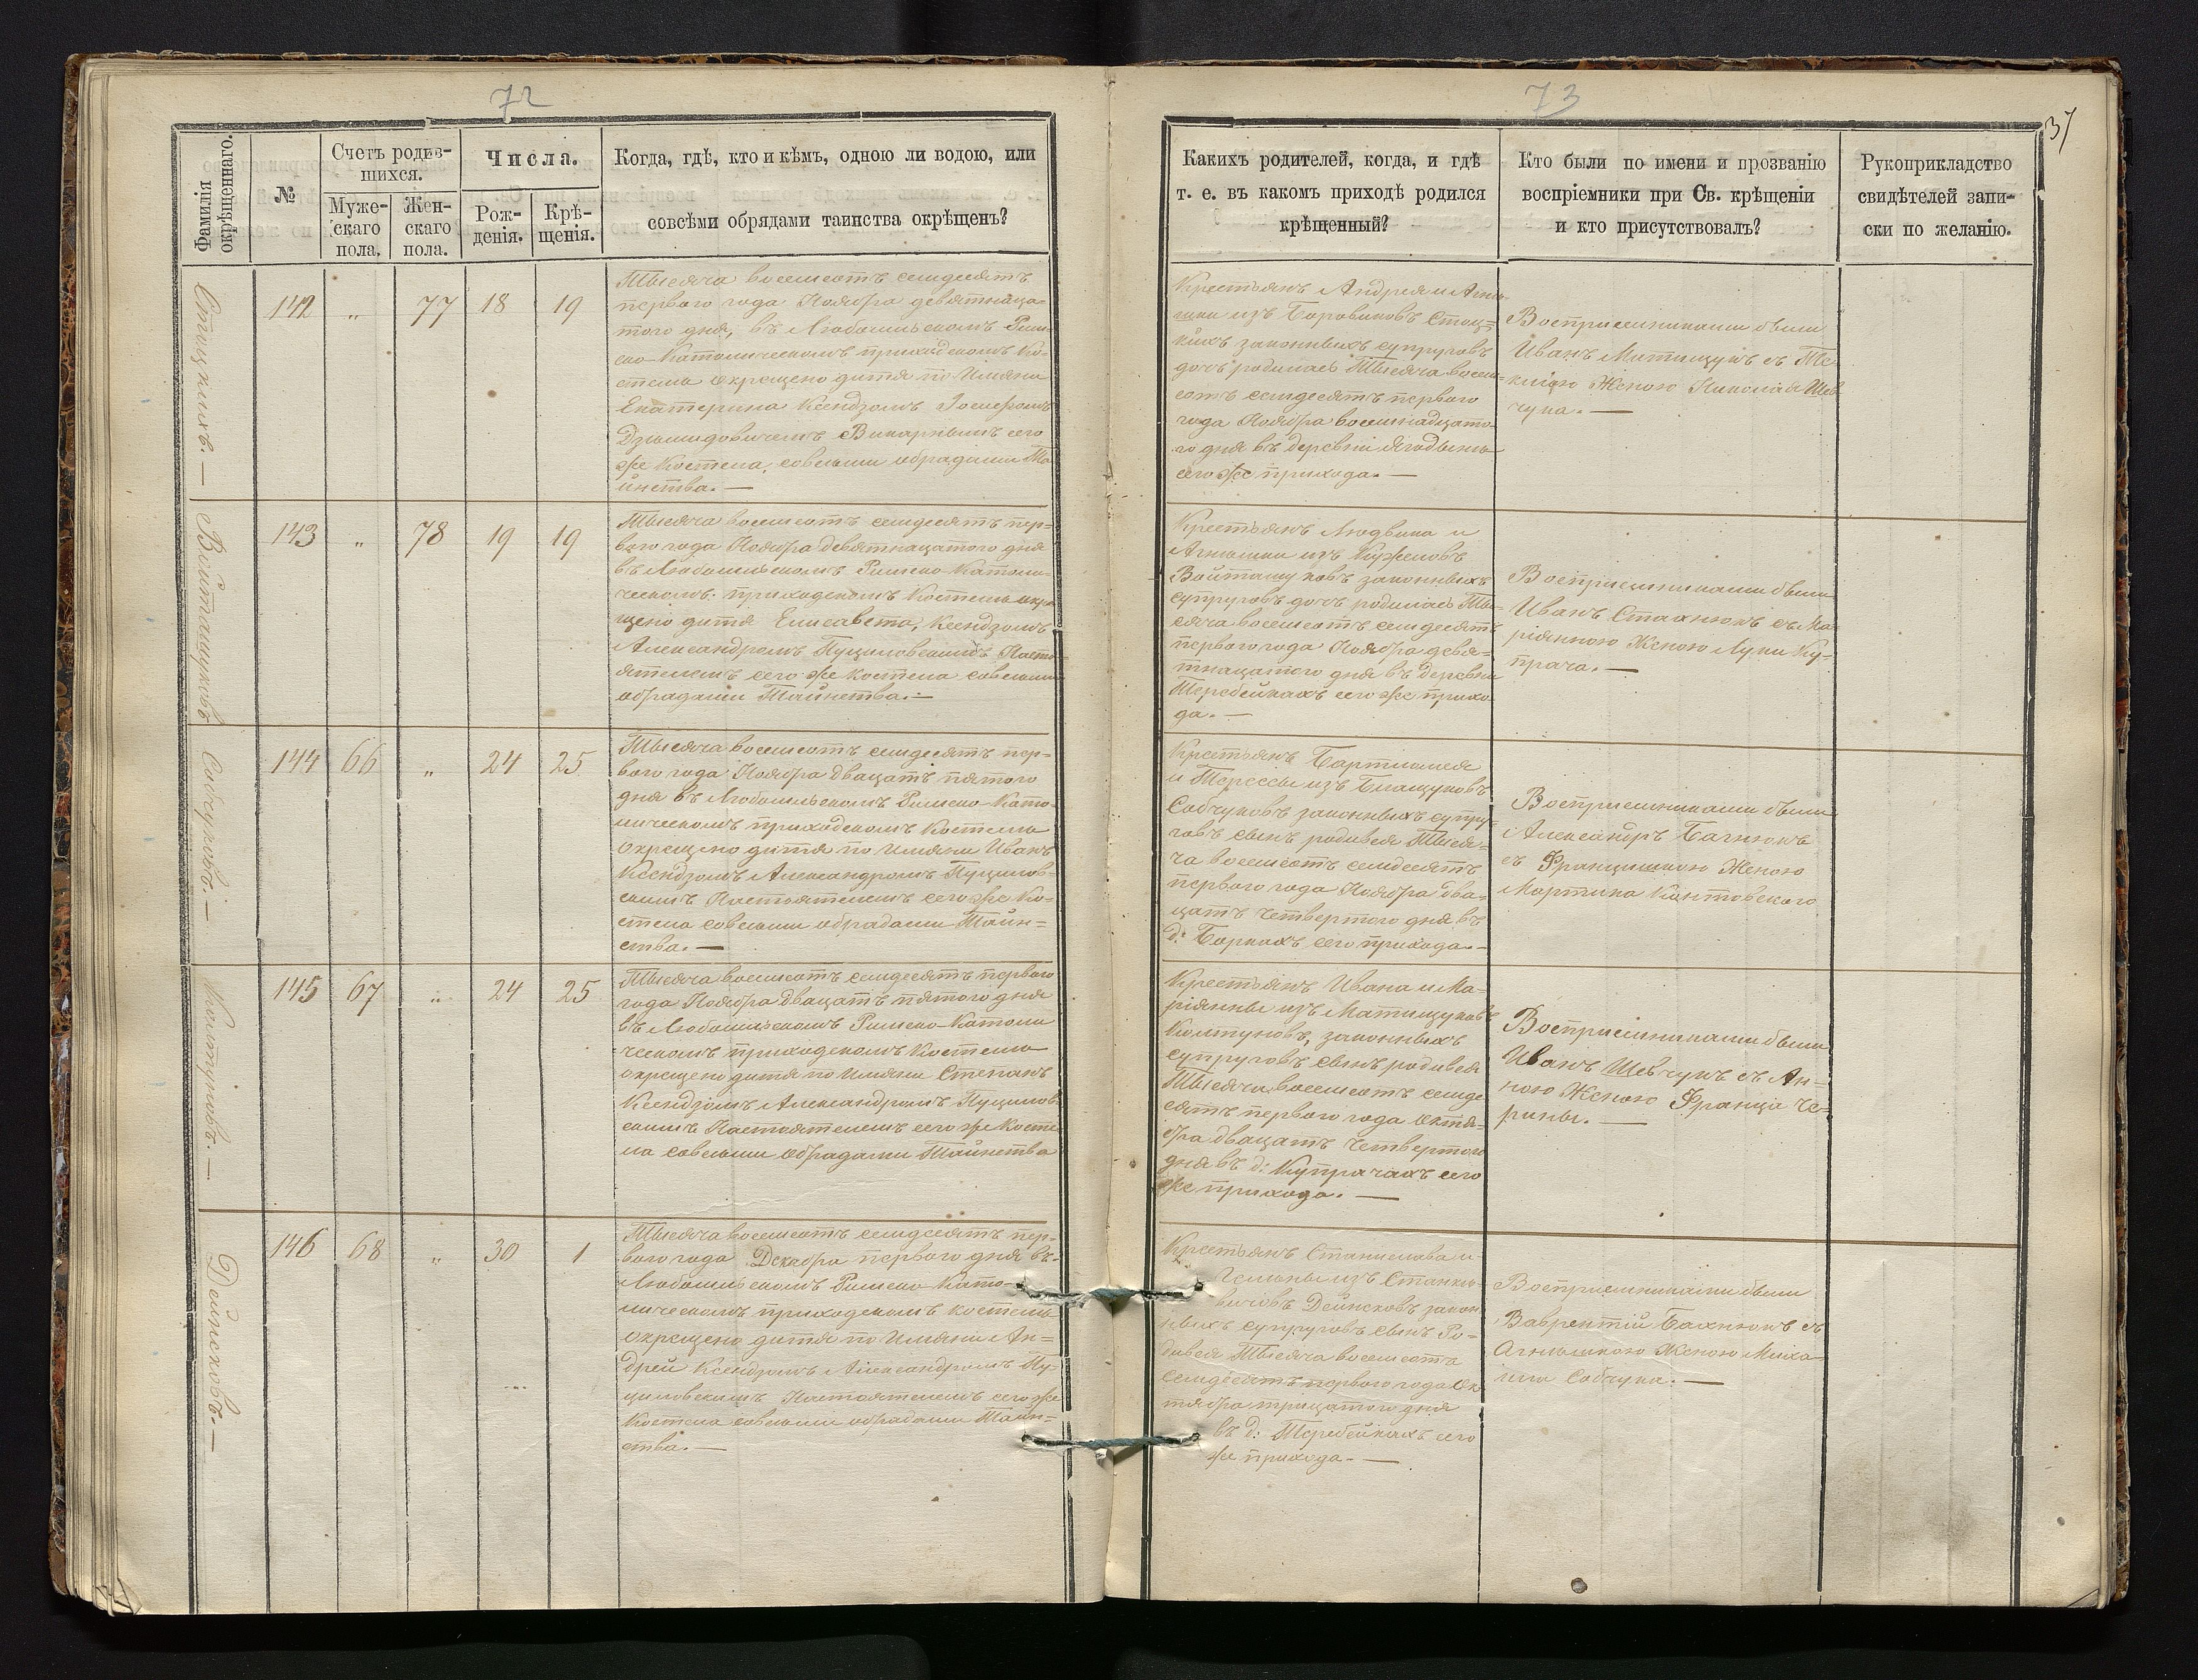 72
Фамилія окрѣщеннаго.
№
Счетъ родив-
шихся.
Муже-
скаго
пола.
Жен-
скаго
пола.
Числа.
Рож-
денія.
Крѣ-
щенія.
Когда, гдѣ, кто и кѣмъ, одною ли водою, или
совсѣми обрядами таинства окрѣщенъ?
Стоцкихъ. —
142 „ 77 18 19
Тысяча восемсотъ семдесятъ
первого года Ноября девятнаца-
того дня, въ Любомльскомъ Рим-
ско-Католическомъ приходскомъ Ко-
стелѣ окрещено дитя по Имяни
Екатерина Ксендзомъ Іосифомъ
Викарнымъ сего
же Костела, совсѣми обрядами Та
инства. —
Войташуковъ
143 „ 78 19 19
Тысяча восемсотъ семдесятъ пер-
вого года Ноября девятнацатого дня
въ Любомльскомъ Римско-Католи-
ческомъ приходскомъ Костелѣ окре
щено дитя Елисавета, Ксендзомъ
Александромъ Пуциловскимъ Насто
ятелемъ сего же костела совсѣми
обрядами Таинства. —
Собчуковъ. —
144 66 „ 24 25
Тысяча восемсотъ семдесятъ пер-
вого года Ноября двацать пятого
дня въ Любомльскомъ Римско-Като-
лическомъ приходскомъ Костелѣ
окрещено дитя по Имяни Иванъ
Ксендзомъ Александромъ Пуцилов-
скимъ Настоятелемъ сего же Ко-
стела совсѣми обрядами Таин-
ства. —
Колтуновъ. —
145 67 „ 24 25
Тысяча восемсотъ семдесятъ первого
года Ноября двацать пятого дня
въ Любомльскомъ Римско-Католи
ческомъ приходскомъ Костелѣ
окрещено дитя по Имяни Степанъ
Ксендзомъ Александромъ Пуцилов
скимъ Настоятелемъ сего же Косте
ла совсѣми обрядами Таинства
Дейнековъ. —
146 68 „ 30 1
Тысяча восемсотъ семдесятъ пер-
вого года Декабря первого дня въ
Любомльскомъ Римско-Като-
лическомъ приходскомъ костелѣ
окрещено дитя по Имяни Ан-
дрей Ксендзомъ Александромъ Пу-
циловскимъ Настоятелемъ сего же
Костела совсѣми обрядами Таин-
ства. —
73
37
Какихъ родителей, когда, и гдѣ
т. е. въ какомъ приходѣ родился
крѣщенный?
Кто были по имени и прозванію
воспріемники при Св. крѣщеніи
и кто присутствовалъ?
Рукоприкладство
свидѣтелей запи-
ски по желанію.
Крестьянъ Андрея и Агнѣ-
шки изъ Боровиковъ Стоц-
кихъ законныхъ супруговъ
дочь родилась Тысяча восем-
сотъ семдесятъ первого
года Ноября восемнадцато-
го дня въ деревни Ягодынѣ
сего же прихода. —
Восприемниками были
Иванъ Матищукъ съ Те
клѣю Женою Николая Шев
чука. —
Крестьянъ Людвика и
Агнѣшки изъ
Войташуковъ законныхъ
супруговъ дочь родилась Ты-
сяча восемсотъ семдесятъ
первого года Ноября девя-
тнацатого дня въ деревни
Теребейкахъ сего же прихо
да. —
Восприемниками были
Иванъ Стахнюкъ съ Ма
ріянною Женою Луки Ку-
прача. —
Крестьянъ Бартломея
и Терессы изъ
Собчуковъ законныхъ супру-
говъ сынъ родився Тыся-
ча восемсотъ семдесятъ
первого года Ноября два-
цать четвертого дня въ
д: Боркахъ сего прихода. —
Восприемниками были
Александръ Бахнюкъ
съ Францишкою Женою
Мартина Квятовского
Крестьянъ Ивана и Ма-
ріянны изъ Матищуковъ
Колтуновъ, законныхъ
супруговъ сынъ родився
Тысяча восемсотъ семде
сятъ первого года Октя-
бря двацать четвертого
дня въ д: Купрачахъ сего
же прихода. —
Восприемниками были
Иванъ Шевчукъ съ Ан-
ною Женою Франца Че-
рины. —
Крестьянъ Станислава и
изъ Станке-
вичовъ Дейнековъ закон
ныхъ супруговъ сынъ Ро-
дився Тысяча восемсотъ
семдесятъ первого года Ок
тября трицатого дня
въ д: Теребейкахъ сего
же прихода. —
Восприемниками были
Ваврентій Бахнюкъ съ
Агнѣшкою Женою Миха
ила Собчука. —